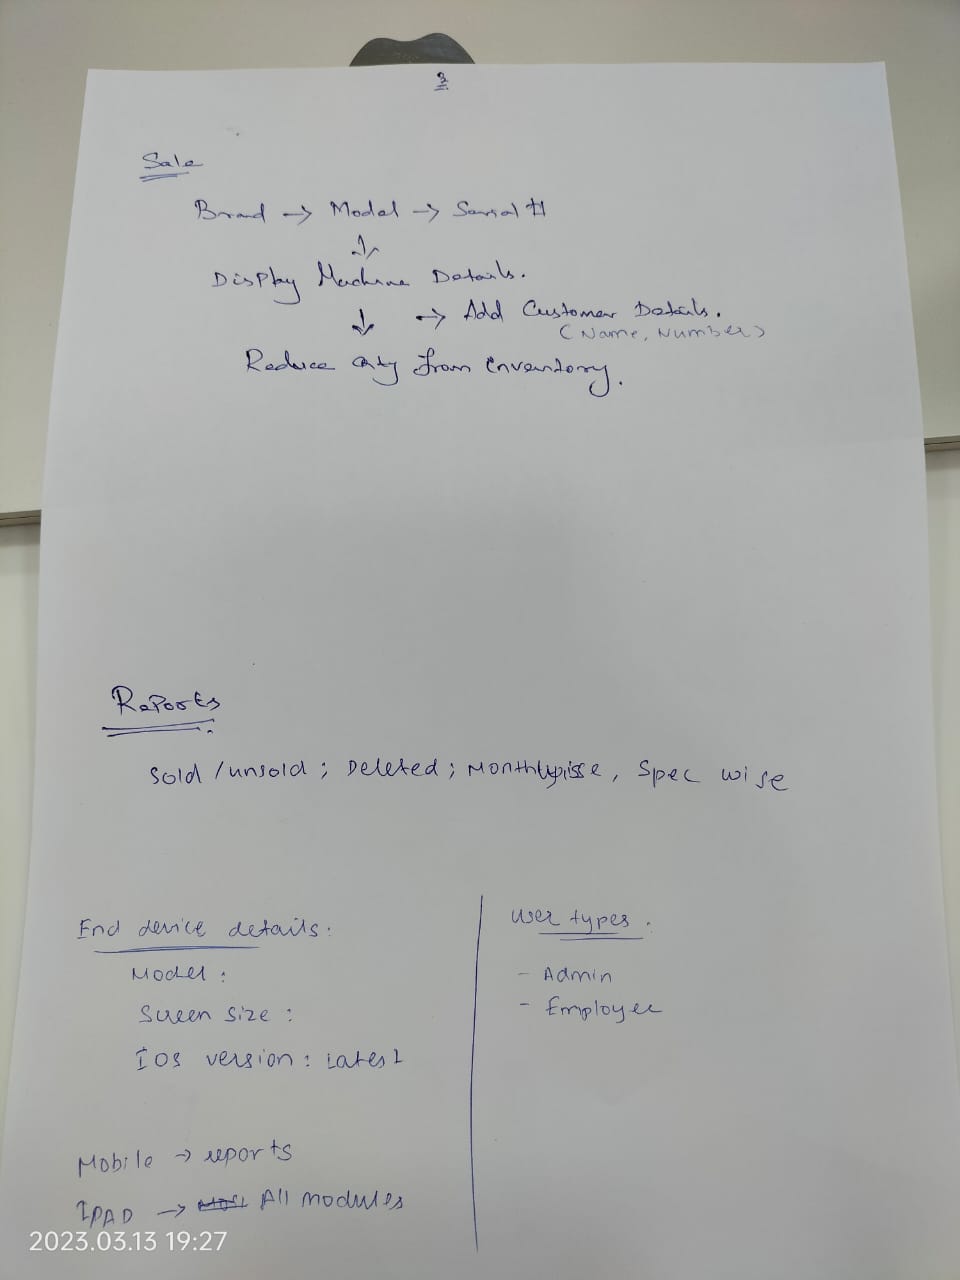 3
Sale
Brand → Model → Serial #
Display Machine Details.
→ Add Customer Details.
(Name, Number)
Reduce Qty from inventory.
Reports
Sold / unsold ; Deleted ; Monthlywise, Spec wise
End device details:
Model :
Screen size :
IOS version : Latest
Mobile → reports
IPAD → All modules
User types.
- Admin
- Employee
2023.03.13 19:27